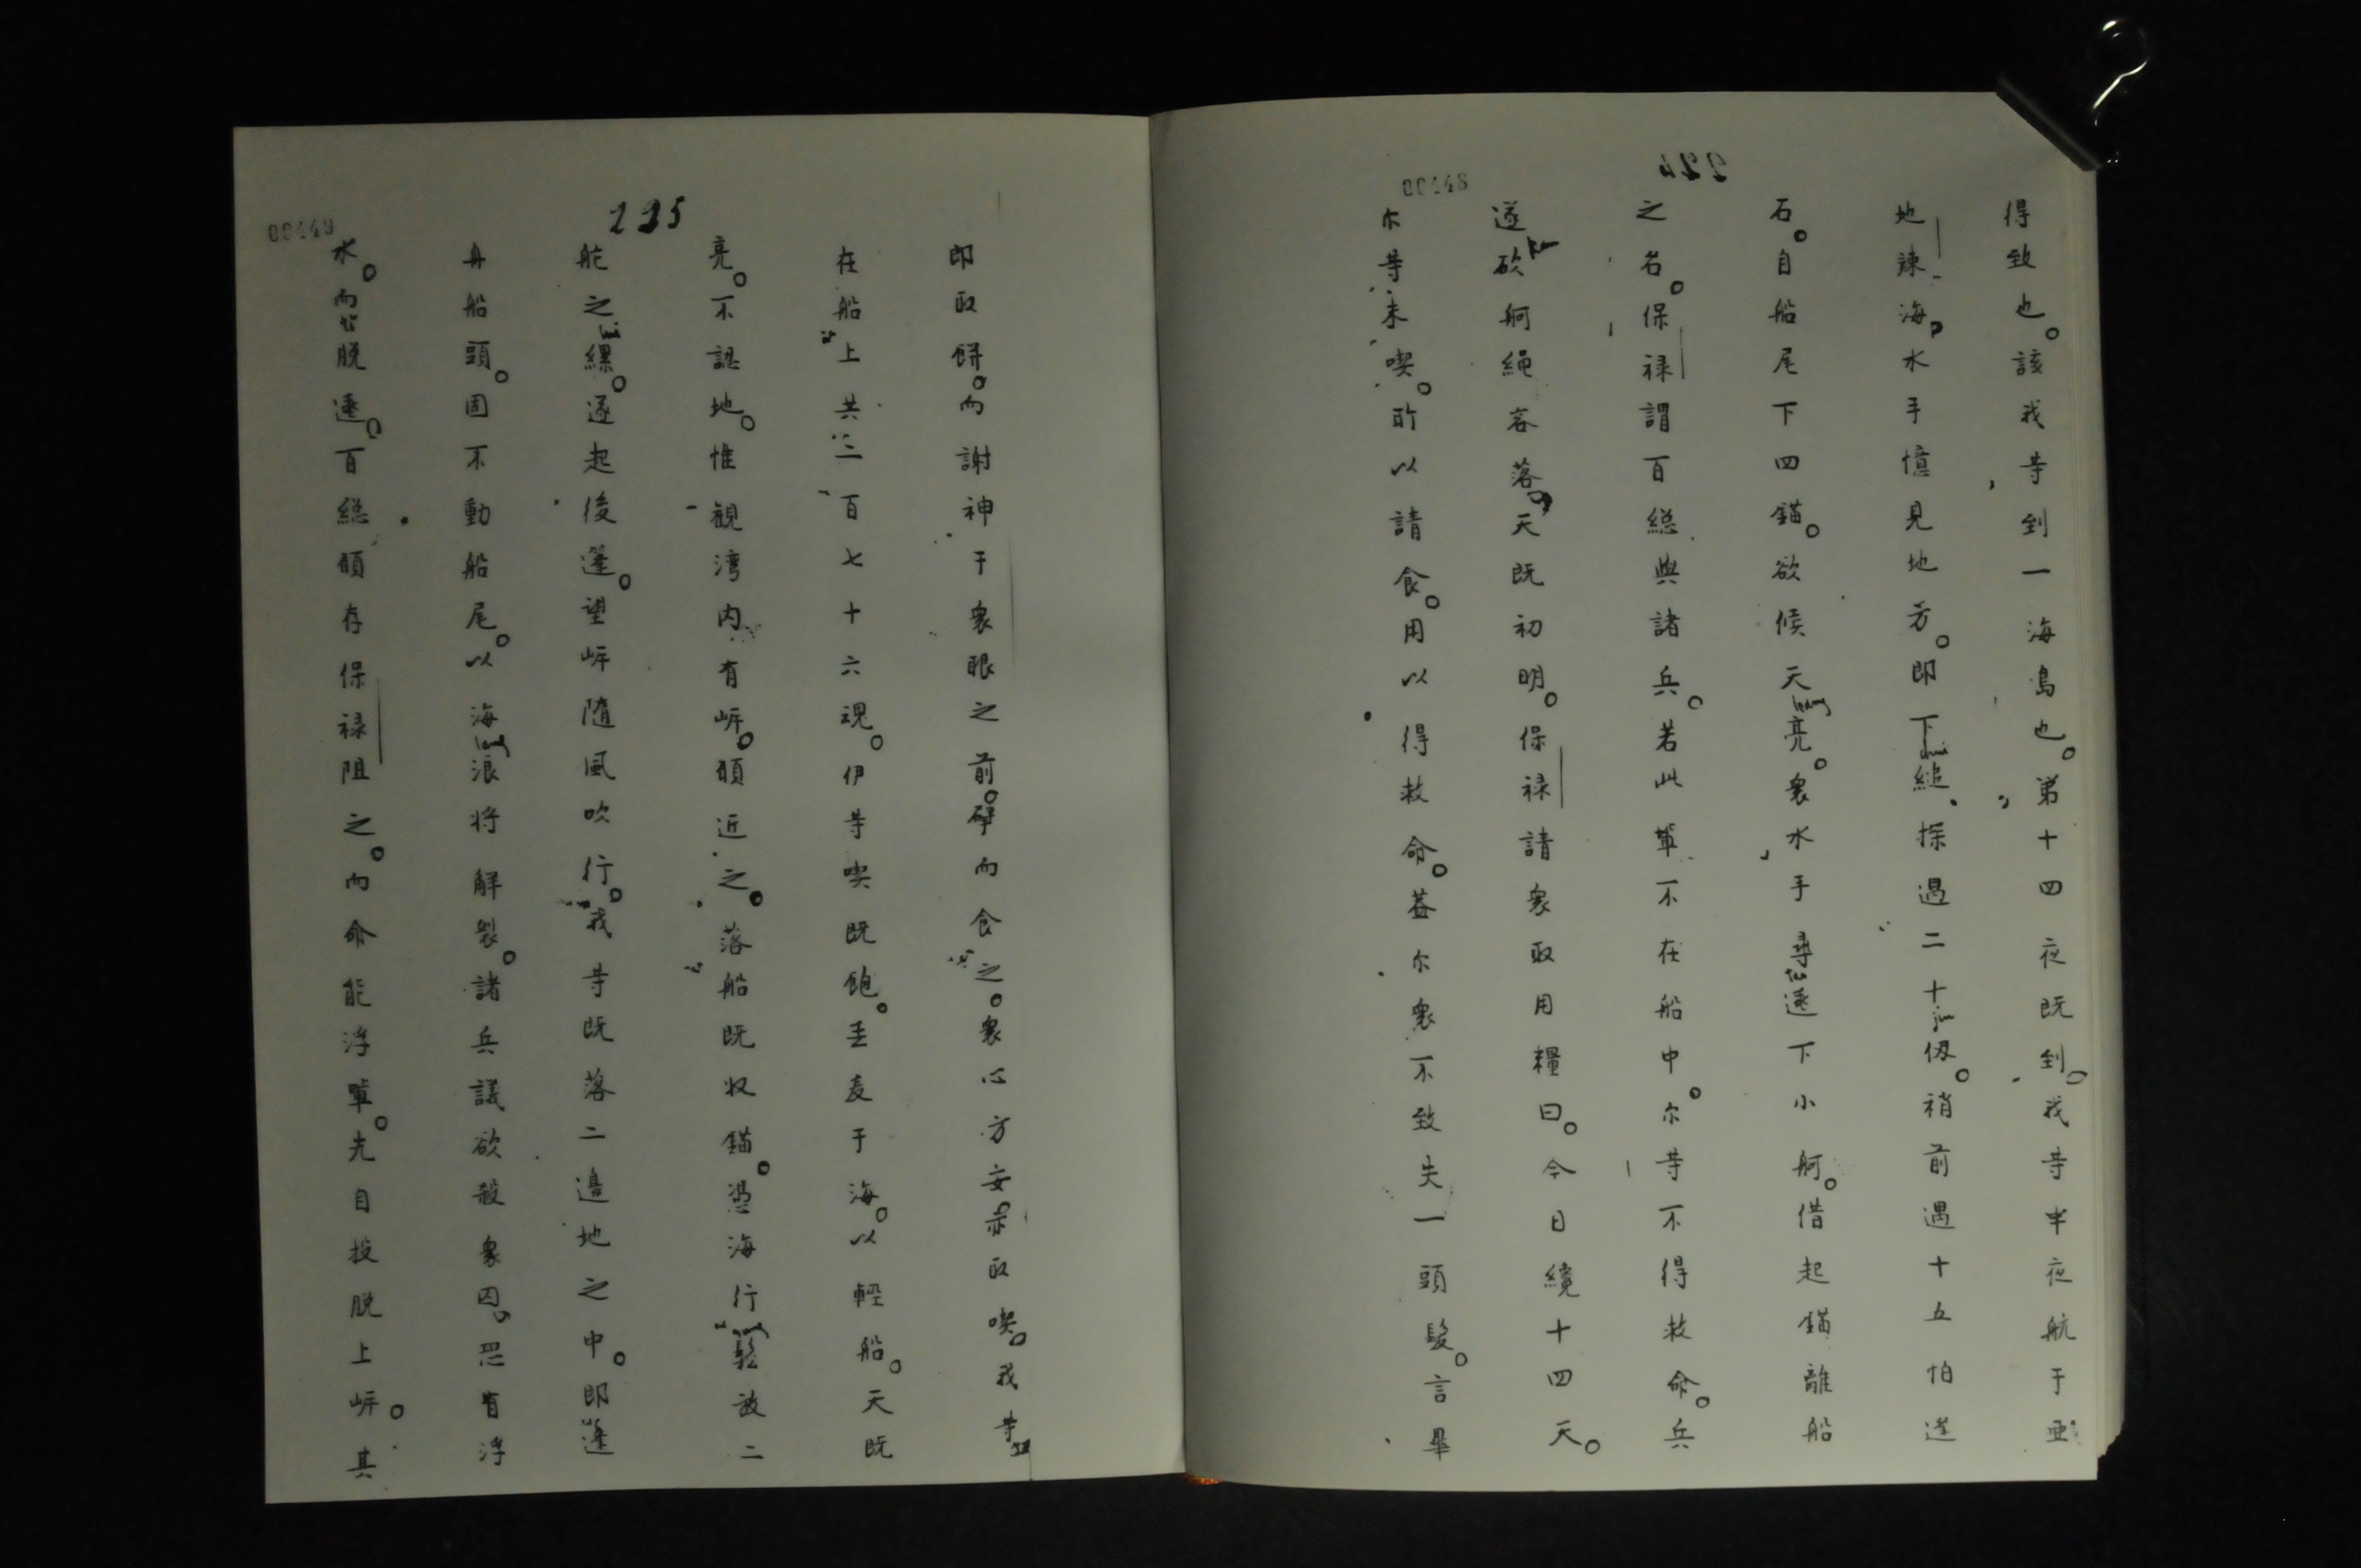 00448
224
得致也。該我等到一海島也。第十四夜既到。我等半夜航于亜
地辣海。水手憶見地方。即下縋探遇二十仭。稍前遇十五。怕逢
石。自船尾下四錨。欲候天亮。衆水手尋逃下小舸。借起錨離船
之名。保禄謂百総與諸兵。若此輩不在船中。尓等不得救命。兵
遂砍舸繩容落。天既初明。保禄請衆取用糧曰。今日纔十四天。
尓等未喫。所以請食。用以得救命。蓋尓衆不致失一頭髮。言畢
00449
225
即取餅。而謝神于衆眼之前。擘而食之。衆心方安。亦取喫。我等
在船上共二百七十六魂。伊等喫既飽。丟麦于海。以輕船。天既
亮。不認地。惟観湾内有岍。願近之。落船既收錨。憑海行鬆放二
舵之縲。遂起後蓬。望岍随風吹行。我等既落二邉地之中。即逢
舟船頭。固不動船尾。以海浪将觧裂。諸兵議欲殺衆囚。恐有浮
水。而脱逃。百総願存保禄阻之。而命能浮軰。先自投脱上岍。其